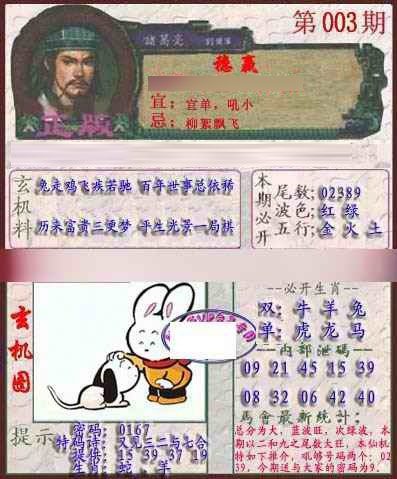 第003期
諸葛亮
稳赢
宜：宜单，吼小
忌：柳絮飘飞
正版
玄机料
兔走鸡飞疾若驰 百年世事总依稀
历来富贵三更梦 平生光景一局棋
本期必开
尾数；02389
波色；红 绿
五行；金 火 土
玄机图
必开生肖
双：牛 羊 兔
单：虎 龙 马
内部泄码
09 21 45 15 39
08 32 06 42 40
馬會最新統計：
总分为大，蓝波旺，次绿波，本
期以二和九之尾数大旺，本仙机
特如下推介，吼够号码两个：02
39，今期送与大家的密码为9.
提示
密码：0167
特码诗：又见三二与七合
提供：15 39 37 19
生肖：蛇、羊